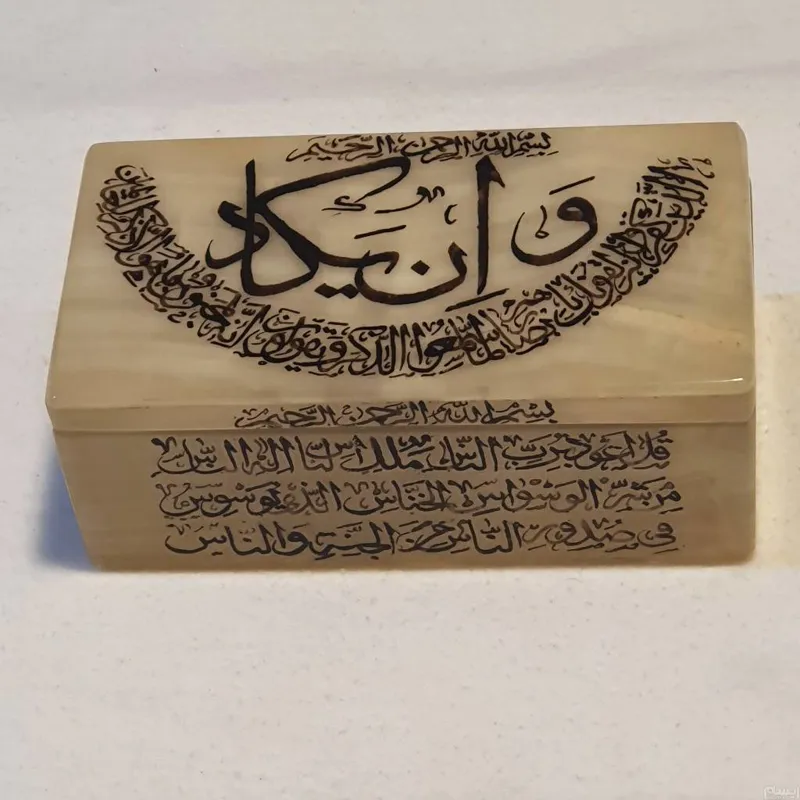 بسم الله الرحمن الرحيم
وان يكاد
الذين كفروا ليزلقونك بابصارهم لما سمعوا الذكر ويقولون انه لمجنون وما هو الا ذكر للعالمين
بسم الله الرحمن الرحيم
قل اعوذ برب الناس ملك الناس اله الناس
من شر الوسواس الخناس الذي يوسوس
في صدور الناس من الجنة والناس
ایسام